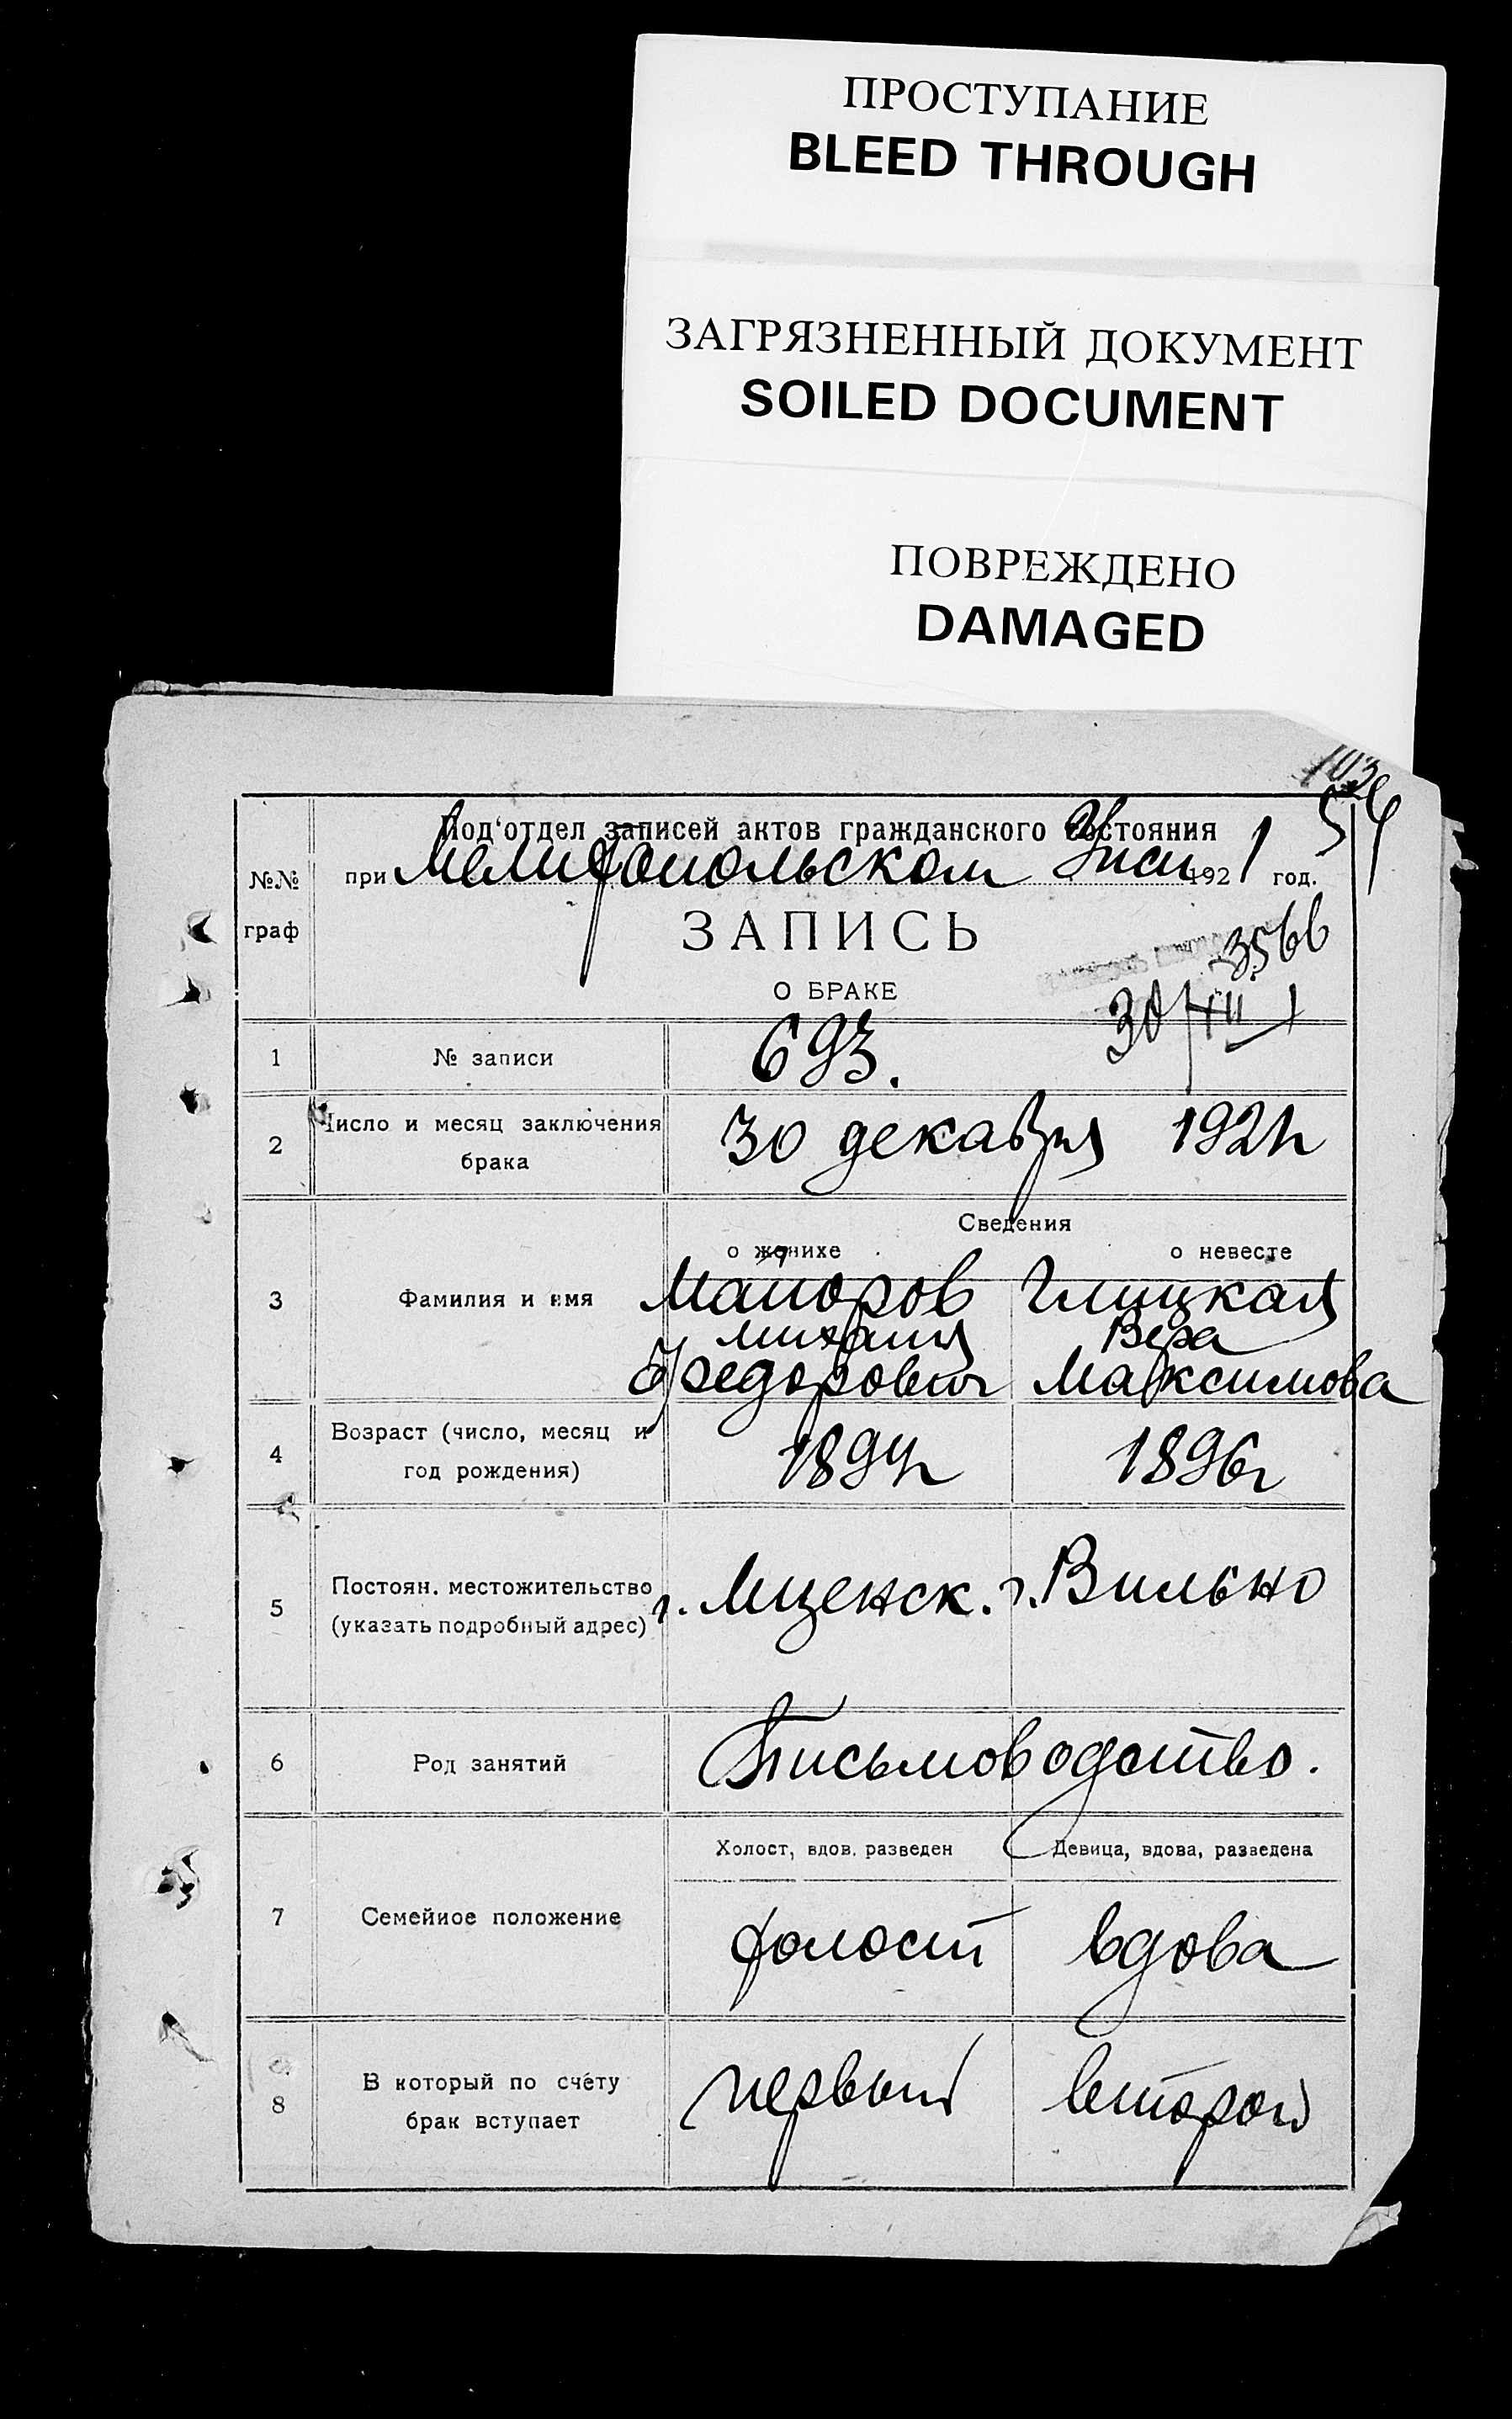 ПРОСТУПАНИЕ
BLEED THROUGH
ЗАГРЯЗНЕННЫЙ ДОКУМЕНТ
SOILED DOCUMENT
ПОВРЕЖДЕНО
DAMAGED
103
54
Под‘отдел записей актов гражданского состояния
при Мелитопольском 1921 год.
№№ граф
ЗАПИСЬ
3566
О БРАКЕ
30/XII 1
1 № записи 693.
2 Число и месяц заключения брака 30 декабря 1921г
Сведения
о женихе о невесте
3 Фамилия и имя Майоров Глицкая
Михаил Вера
Федорович Максимова
4 Возраст (число, месяц и год рождения) 1894г 1896г
5 Постоян. местожительство (указать подробный адрес) г. Мценск. г. Вильно
6 Род занятий Письмоводство.
Холост, вдов. разведен Девица, вдова, разведена
7 Семейное положение холост вдова
8 В который по счету брак вступает первый второй